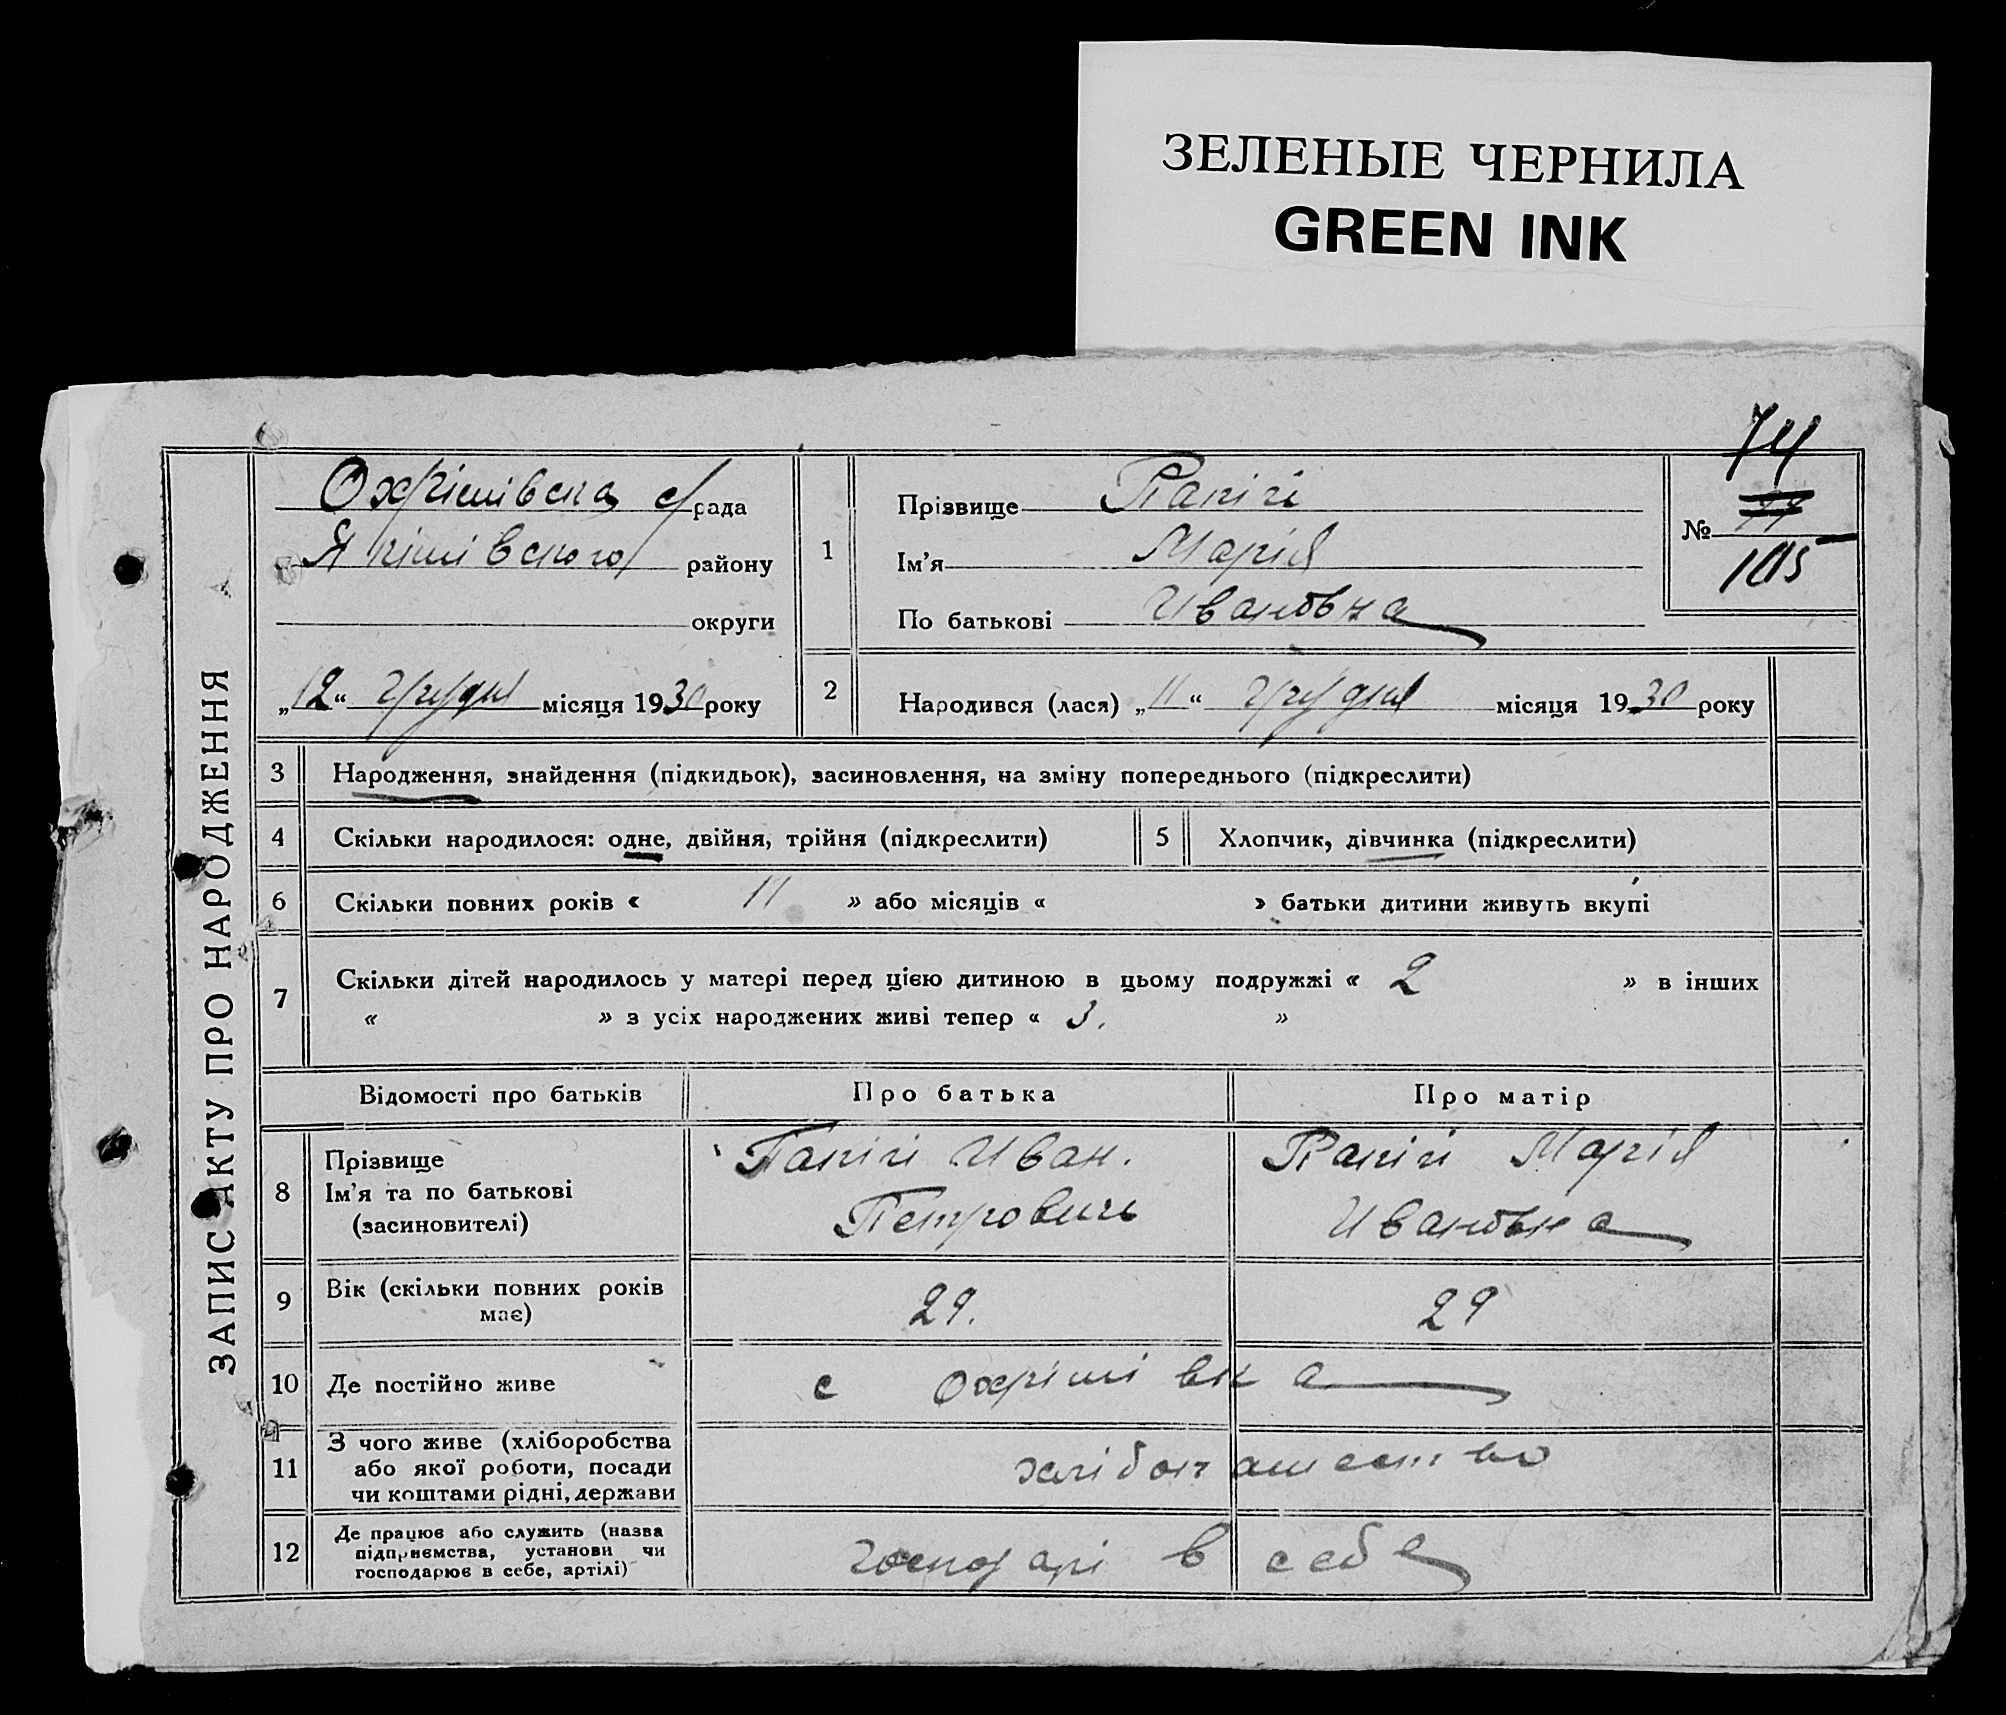 ЗЕЛЕНЫЕ ЧЕРНИЛА
GREEN INK
ЗАПИС АКТУ ПРО НАРОДЖЕННЯ
Охрімівска с/рада
Якімівского району
округи
„12“ грудня місяця 1930 року
1
Прізвище Папічі
Ім'я Марія
По батькові Ивановна
74
№
105
2 Народився (лася) „11“ грудня місяця 1930 року
3 Народження, знайдення (підкидьок), засиновлення, на зміну попереднього (підкреслити)
4 Скільки народилося: одне, двійня, трійня (підкреслити) 5 Хлопчик, дівчинка (підкреслити)
6 Скільки повних років « 11 » або місяців « » батьки дитини живуть вкупі
7 Скільки дітей народилось у матері перед цією дитиною в цьому подружжі « 2 » в інших
« » з усіх народжених живі тепер « 3. »
Відомості про батьків Про батька Про матір
8 Прізвище
Ім'я та по батькові
(засиновителі)
Папічі Иван.
Петровичь
Папічі Марія
Ивановна
9 Вік (скільки повних років
має)
29. 29
10 Де постійно живе с Охрімівка
11 З чого живе (хліборобства
або якої роботи, посади
чи коштами рідні, держави
хлібопашество
12 Де працює або служить (назва
підприємства, установи чи
господарює в себе, артілі)
господарі в себе